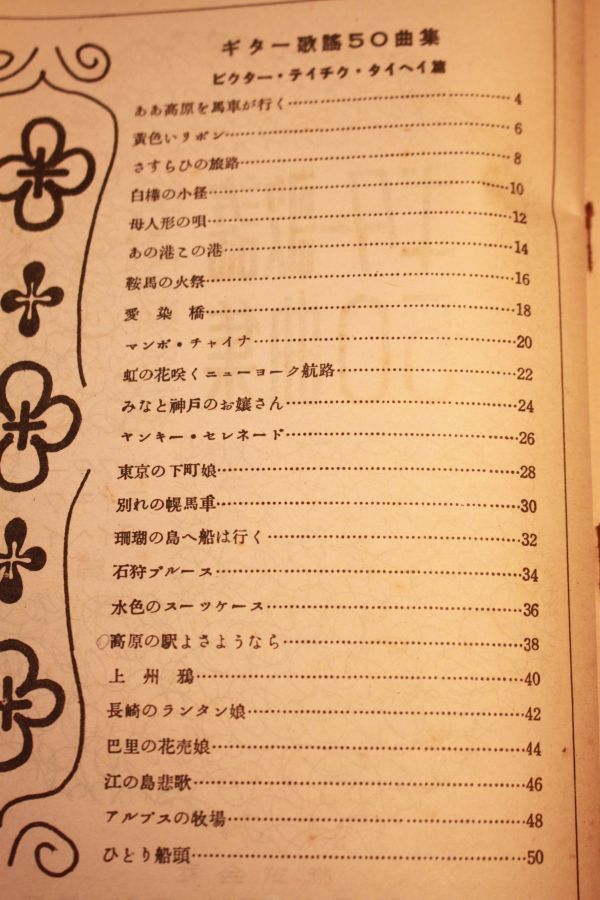 ギター歌謡50曲集
ビクター・テイチク・タイヘイ篇
ああ高原を馬車が行く 4
黄色いリボン 6
さすらひの旅路 8
白樺の小径 10
母人形の唄 12
あの港この港 14
鞍馬の火祭 16
愛染橋 18
マンボ・チャイナ 20
虹の花咲くニューヨーク航路 22
みなと神戸のお嬢さん 24
ヤンキー・セレネード 26
東京の下町娘 28
別れの幌馬車 30
珊瑚の島へ船は行く 32
石狩ブルース 34
水色のスーツケース 36
高原の駅よさようなら 38
上州鴉 40
長崎のランタン娘 42
巴里の花売娘 44
江の島悲歌 46
アルプスの牧場 48
ひとり船頭 50